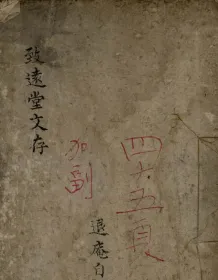 致遠堂文存
四大五頁
加副
退庵自